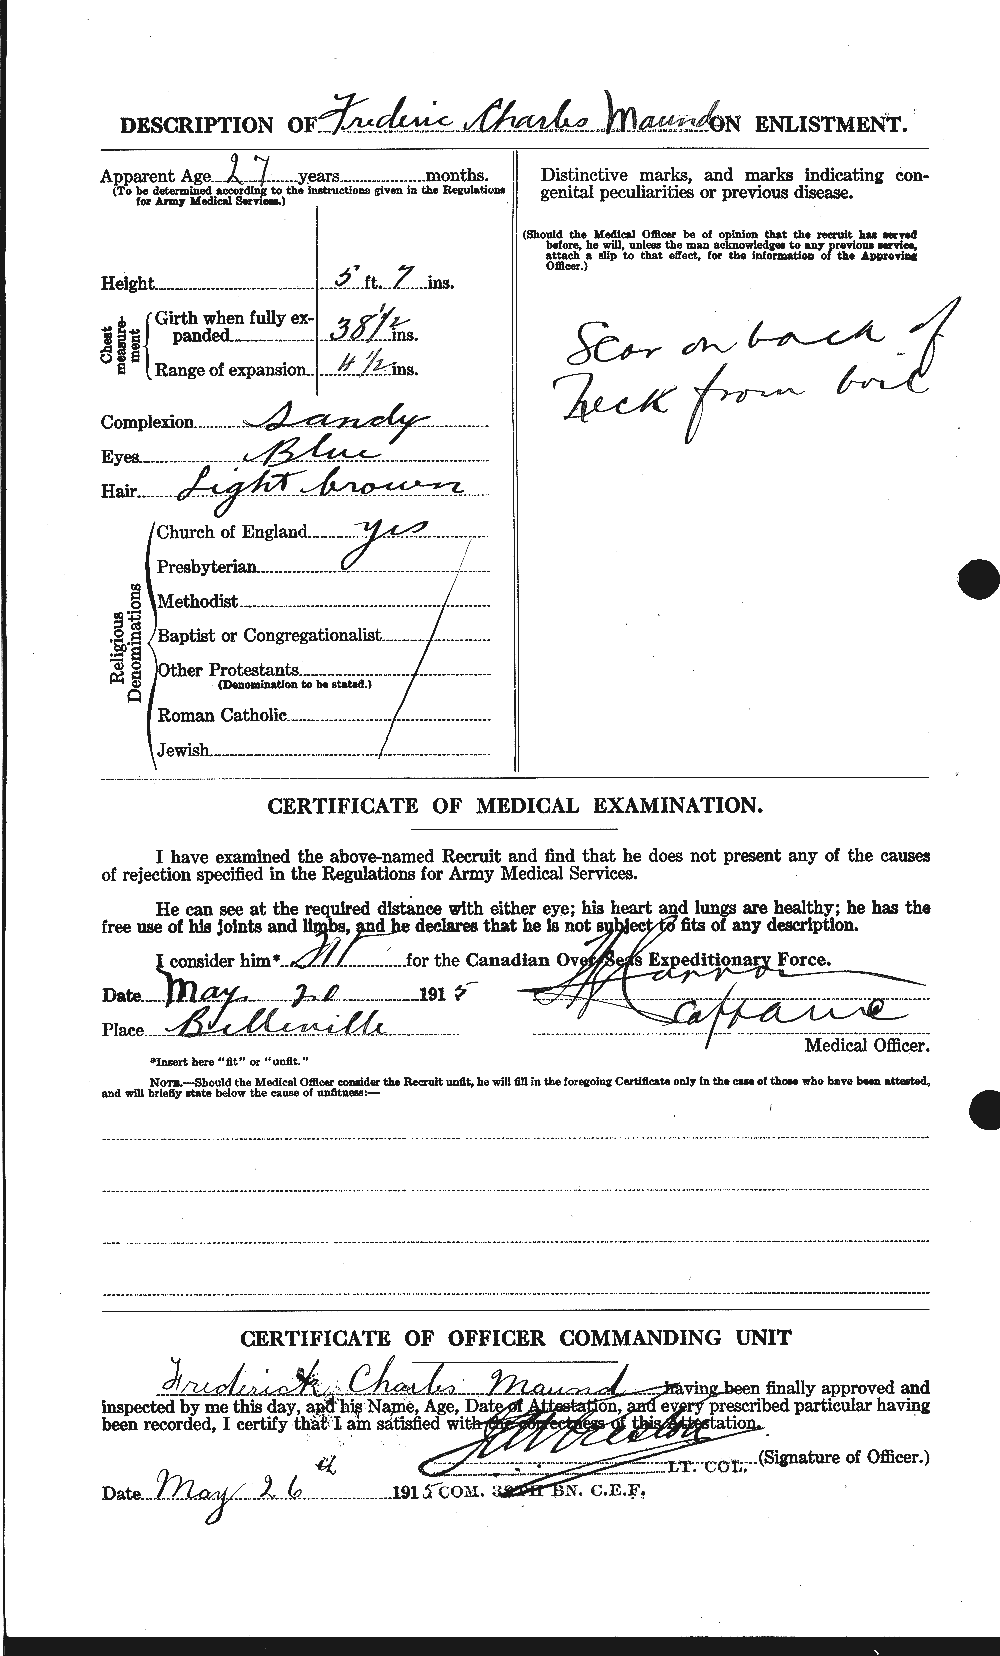 DESCRIPTION OF Frederic Charles Maund ON ENLISTMENT.
Apparent Age 27 years months.
(To be determined according to the instructions given in the Regulations
for Army Medical Services.)
Height 5 ft. 7 ins.
Chest
measure-
ment
Girth when fully ex-
panded 38 1/2 ins.
Range of expansion 4 1/2 ins.
Complexion Sandy
Eyes Blue
Hair Light brown
Religious
Denominations
Church of England yes
Presbyterian
Methodist
Baptist or Congregationalist
Other Protestants
(Denomination to be stated.)
Roman Catholic
Jewish
Distinctive marks, and marks indicating con-
genital peculiarities or previous disease.
(Should the Medical Officer be of opinion that the recruit has served
before, he will, unless the man acknowledges to any previous service,
attach a slip to that effect, for the information of the Approving
Officer.)
Scar on back of
neck from boil
CERTIFICATE OF MEDICAL EXAMINATION.
I have examined the above-named Recruit and find that he does not present any of the causes
of rejection specified in the Regulations for Army Medical Services.
He can see at the required distance with either eye; his heart and lungs are healthy; he has the
free use of his joints and limbs, and he declares that he is not subject to fits of any description.
I consider him* Fit for the Canadian Over-Seas Expeditionary Force.
Date May 20 1915
Place Belleville
Medical Officer.
*Insert here "fit" or "unfit."
NOTE.—Should the Medical Officer consider the Recruit unfit, he will fill in the foregoing Certificate only in the case of those who have been attested,
and will briefly state below the cause of unfitness:—
CERTIFICATE OF OFFICER COMMANDING UNIT
Frederick Charles Maund having been finally approved and
inspected by me this day, and his Name, Age, Date of Attestation, and every prescribed particular having
been recorded, I certify that I am satisfied with the correctness of this Attestation.
LT. COL. (Signature of Officer.)
Date May 26th 1915 COM. 39TH BN. C.E.F.